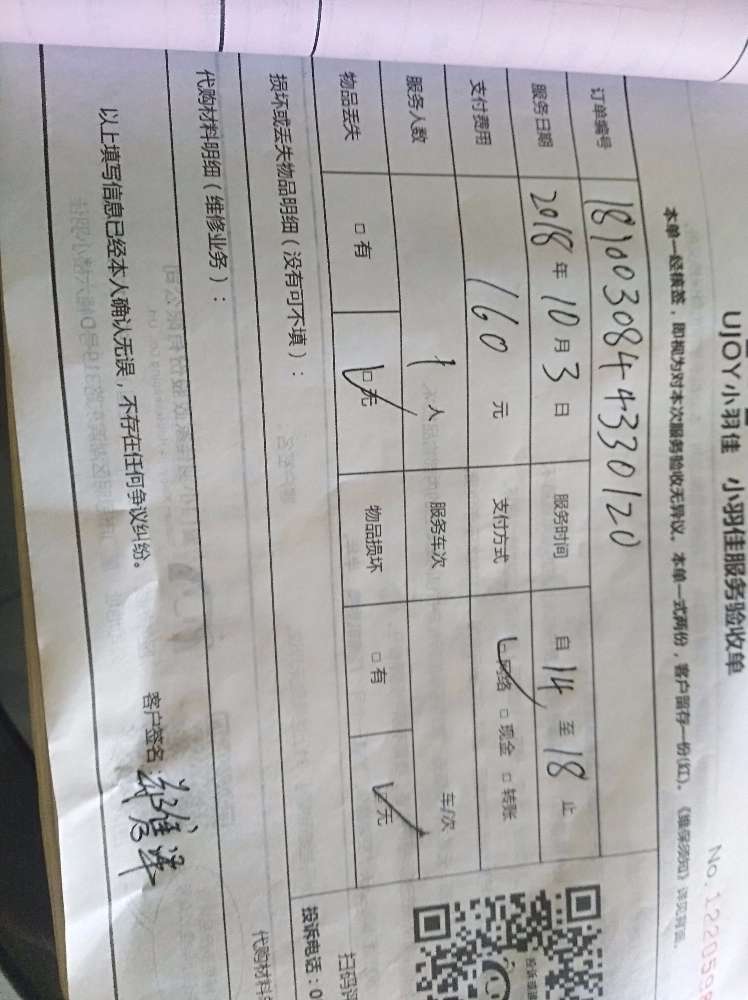 UJOY小羽佳 小羽佳服务验收单
No.1220595
本单一经核签，即视为对本次服务验收无异议。本单一式两份，客户留存一份(红)。《维保须知》详见背面。
订单编号 1810030844330120
服务日期 2018 年 10 月 3 日 服务时间 自 14 至 18 止
支付费用 160 元 支付方式 □网络 □现金 □转账
服务人数 1 人 服务车次 车/次
物品丢失 □有 □无 物品损坏 □有 □无
扫码评
损坏或丢失物品明细（没有可不填）：
投诉电话：0
代购材料明细（维修业务）：
代购材料
以上填写信息已经本人确认无误，不存在任何争议纠纷。
客户签名：